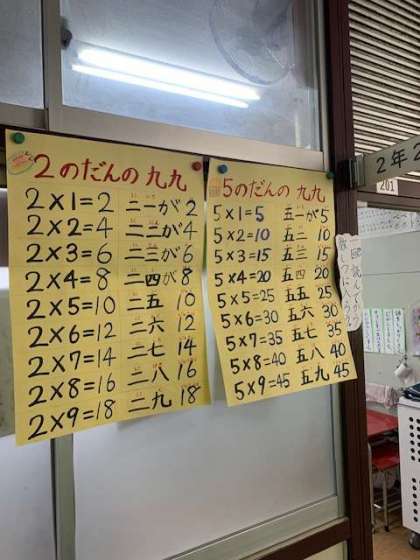 2のだんの 九九
2×1=2 二一が2
2×2=4 二二が4
2×3=6 二三が6
2×4=8 二四が8
2×5=10 二五 10
2×6=12 二六 12
2×7=14 二七 14
2×8=16 二八 16
2×9=18 二九 18
5のだんの 九九
5×1=5 五一が5
5×2=10 五二 10
5×3=15 五三 15
5×4=20 五四 20
5×5=25 五五 25
5×6=30 五六 30
5×7=35 五七 35
5×8=40 五八 40
5×9=45 五九 45
2年2
201